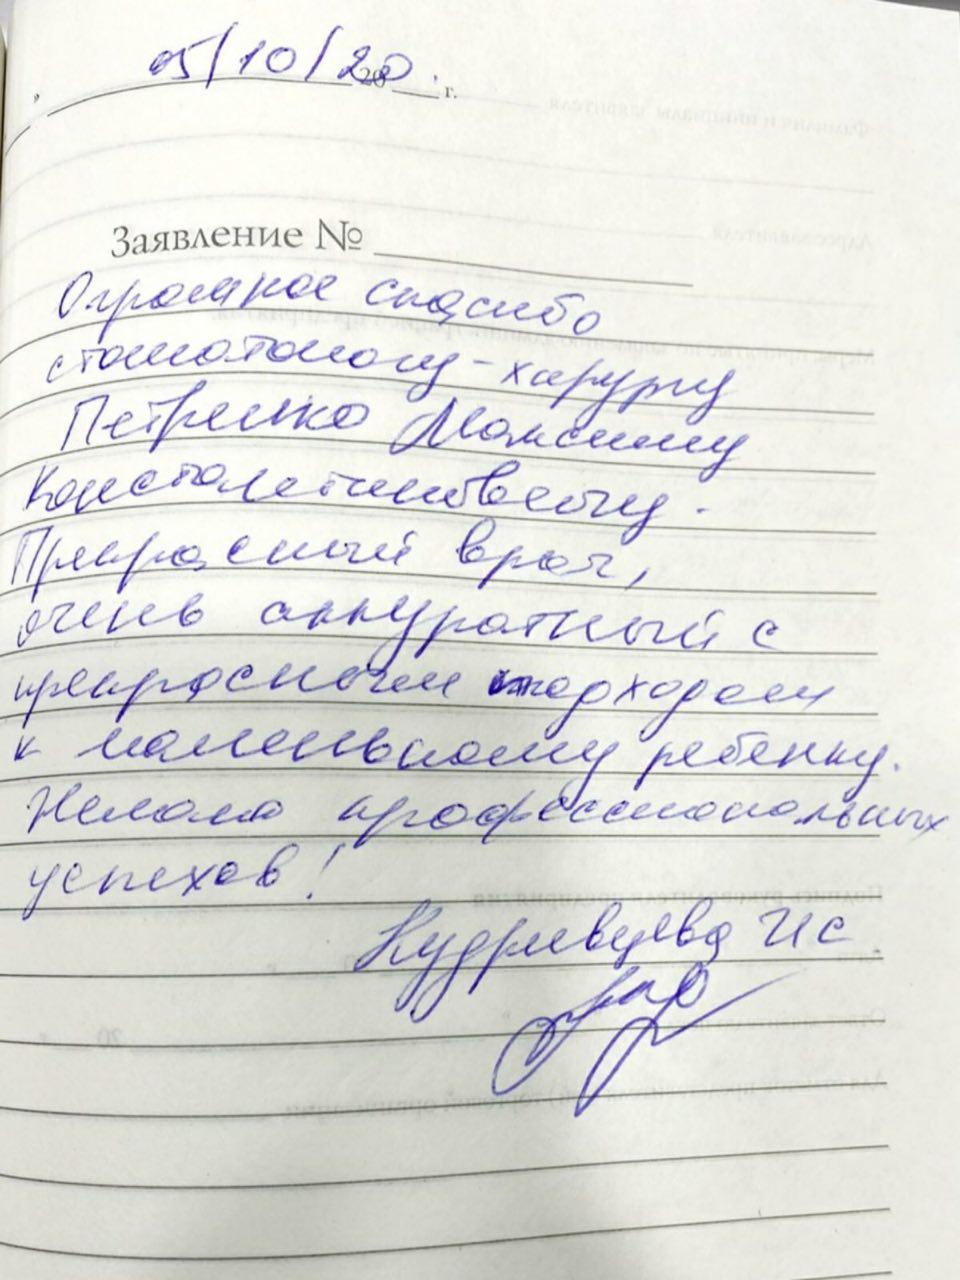 05/10/20 20 г.
Заявление №
Огромное спасибо
стоматологу-хирургу
Петренко Максиму
Константиновичу.
Прекрасный врач,
очень аккуратный с
прекрасным подходом
к маленькому ребенку.
Желаю профессиональных
успехов!
Кудрявцева ИС